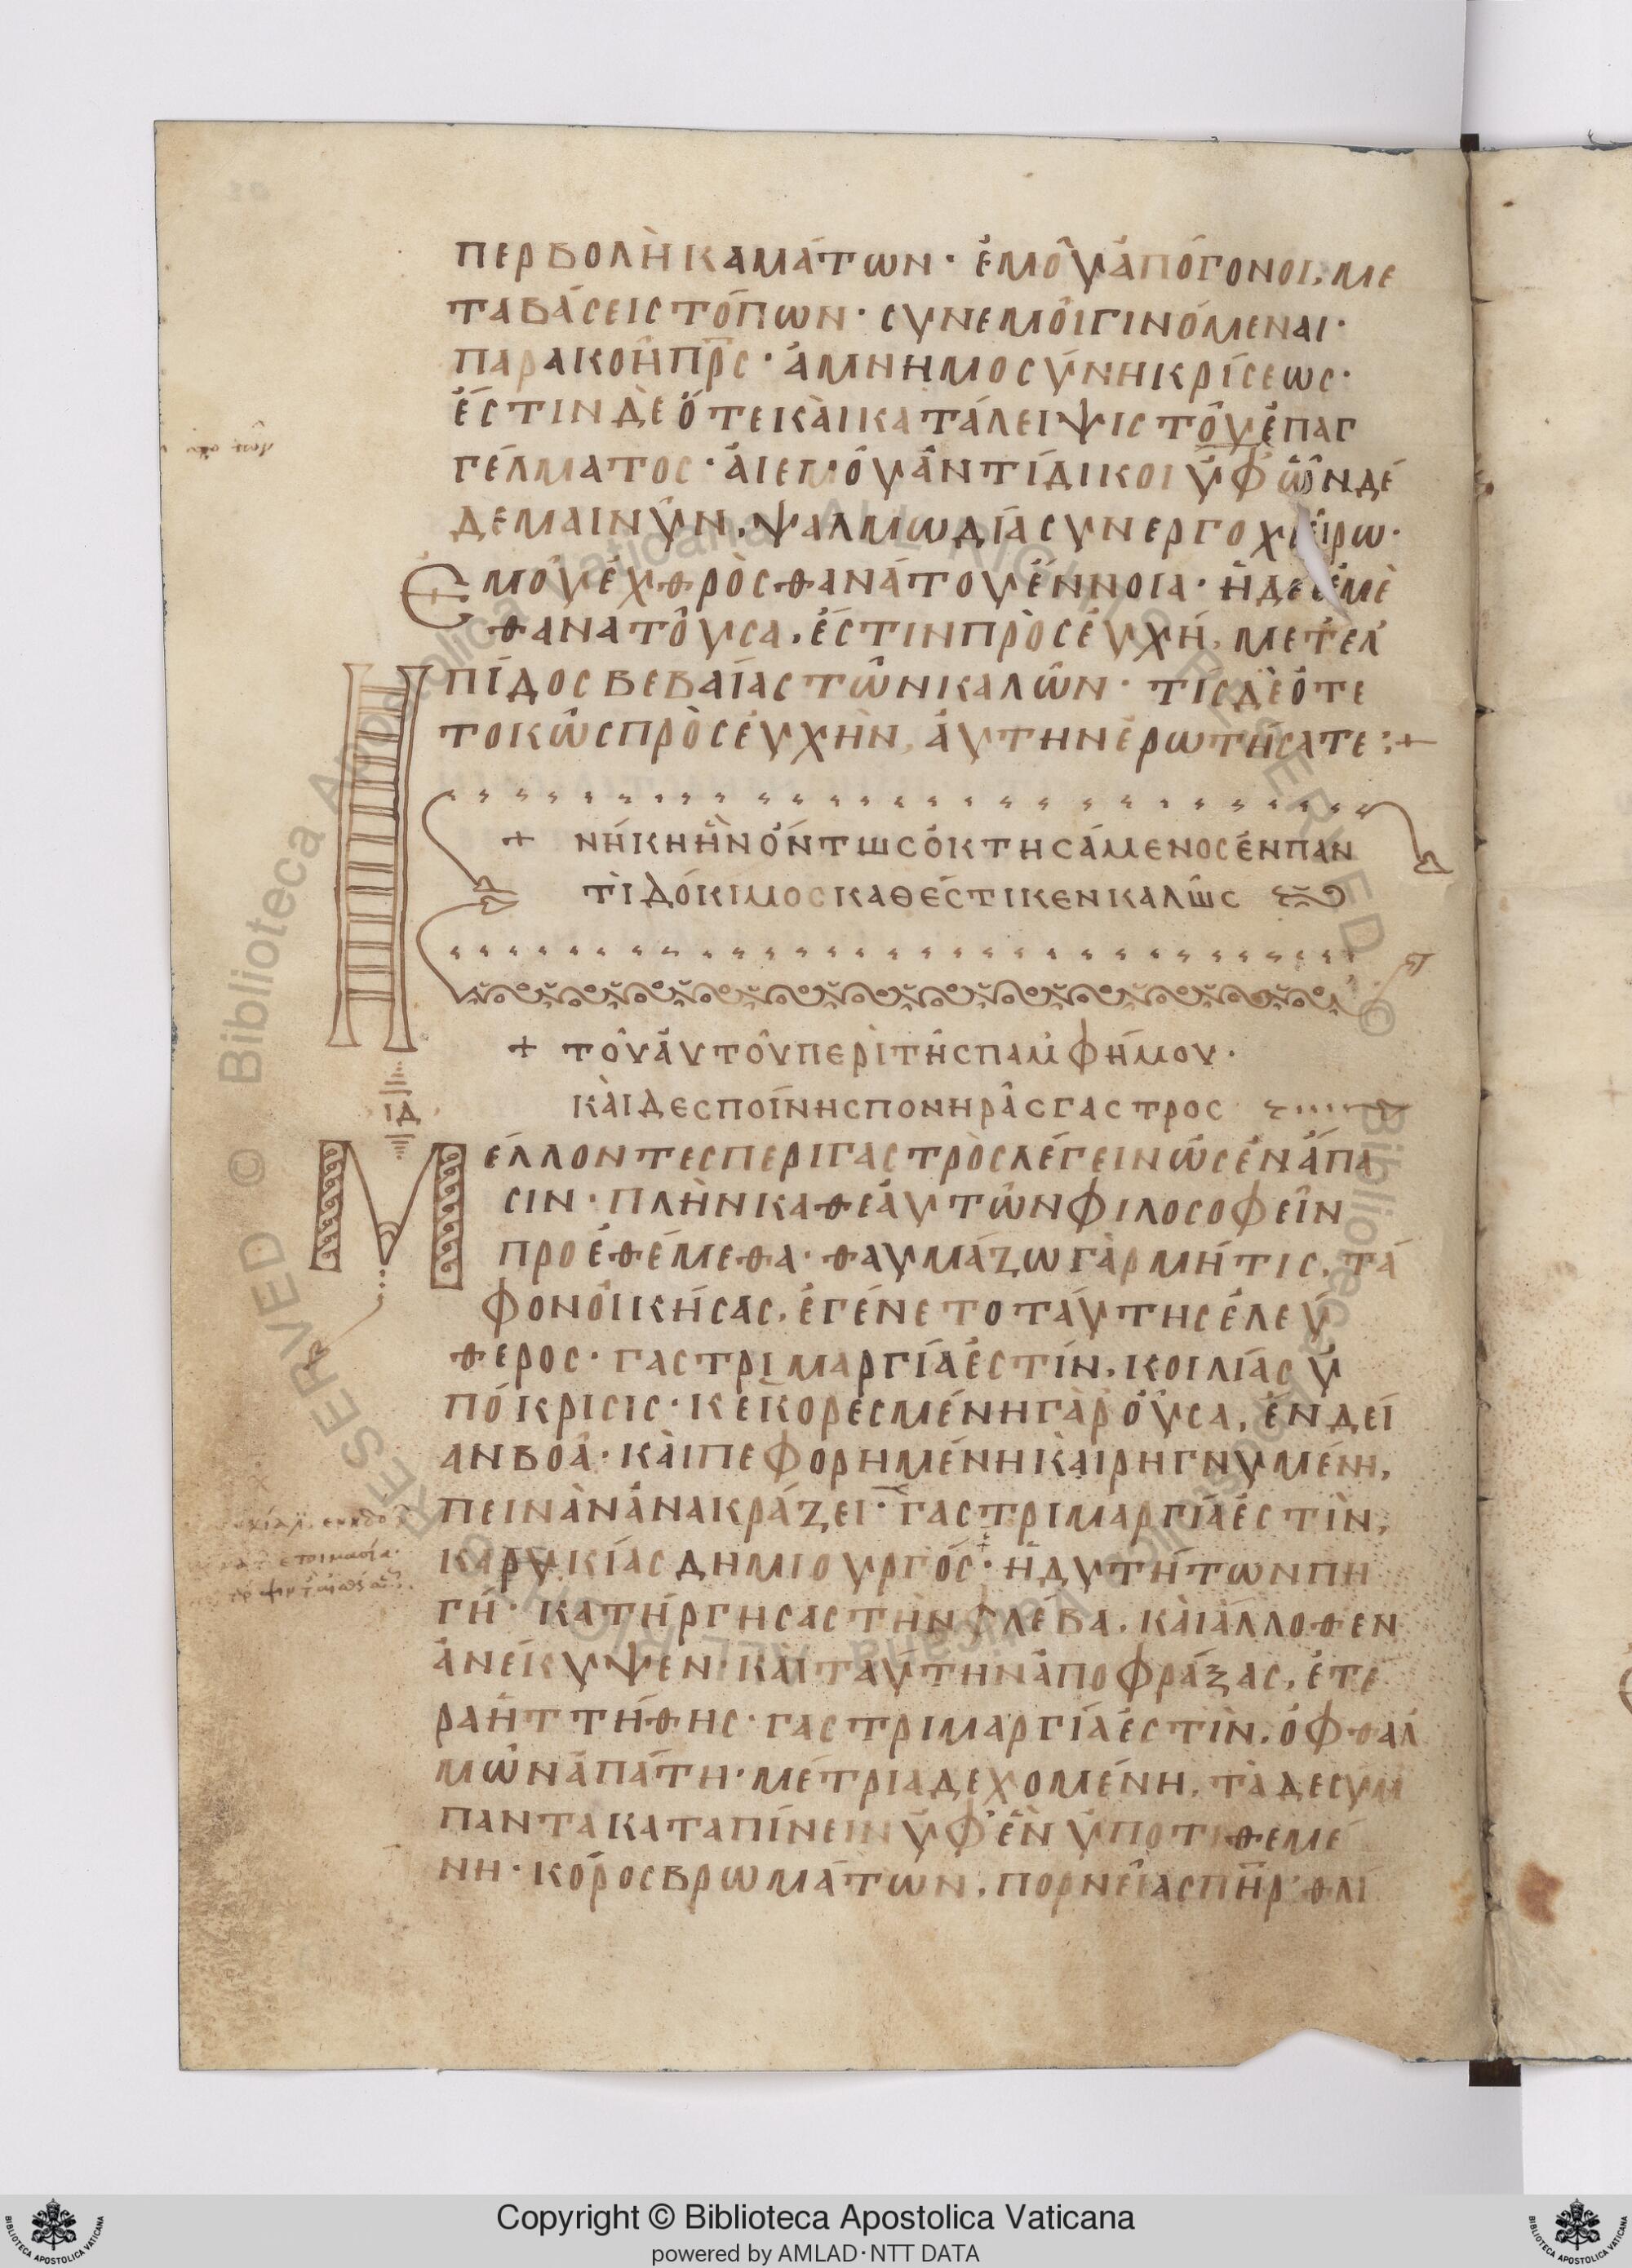 περβολὴ καμάτων· ἐμοῦ ἀπόγονοι, με
ταβάσεις τόπων· σὺν ἐμοὶ γινόμεναι·
παρακοὴ πρ̅ς· ἀμνημοσύνη κρίσεως·
ἔστιν δὲ ὅτε καὶ κατάλειψις τοῦ ἐπαγ
γέλματος· ἁι ἐμοῦ ἀντίδικοι ὑφ' ὧν δέ
δεμαι νῦν, ψαλμωδία σὺν εργοχείρω·
Ἐμοῦ ἐχθρὸς θανάτου ἔννοια· ἡ δὲ ἐμὲ
θανατοῦσα, ἐστιν προσευχή, μετ' ελ
πίδος βεβαίας τῶν καλῶν· τίς δὲ ὁ τε
τοκὼς προσευχὴν, ἀυτην ἐρωτήσατε :+
+ νήκη ἣν ὄντως ὁ κτησάμενος ἐν παν
τὶ δόκιμος καθέστικεν καλῶς
+ τοῦ ἀυτοῦ περὶ τῆς παμφήμου·
καὶ δεσποίνης πονηρᾶς γαστρος
ιδ
Μέλλοντες περι γαστρὸς λέγειν ὡς ἐν ἅπα
σιν· πλὴν καθ' ἑαυτῶν φιλοσοφεῖν
προεθέμεθα· θαυμάζω γὰρ μή τις, τά
φον ὀικήσας, ἐγένετο ταύτης ἐλεύ
θερος· γαστριμαργία ἐστίν, κοιλίας ὑ
πόκρισις· κεκορεσμένη γὰρ οὖσα, ἔνδει
αν βοᾶ· καὶ πεφορημένη κ̀αι ρηγνυμένη,
πεινὰν ἀνακράζει· γαστριμαργία ἐστὶν,
καρυκίας δημιουργός· ἡδυτήτων πη
γή· κατήργησας τὴν φλέβα, καὶ ἄλλοθεν
ἀνέκυψεν· και ταύτην ἀποφράξας, ἑτέ
ρα ἡττήθης· γαστριμαργία ἐστὶν, ὀφθαλ
μῶν ἀπάτη· μέτρια δεχομένη, τὰ δε σύμ
παντα καταπίνειν ὑφ' ἓν ὑποτιθεμέ
νη· κόρος βρωμάτων, πορνείας πη̅ρ· θλί
Copyright © Biblioteca Apostolica Vaticana
powered by AMLAD·NTT DATA